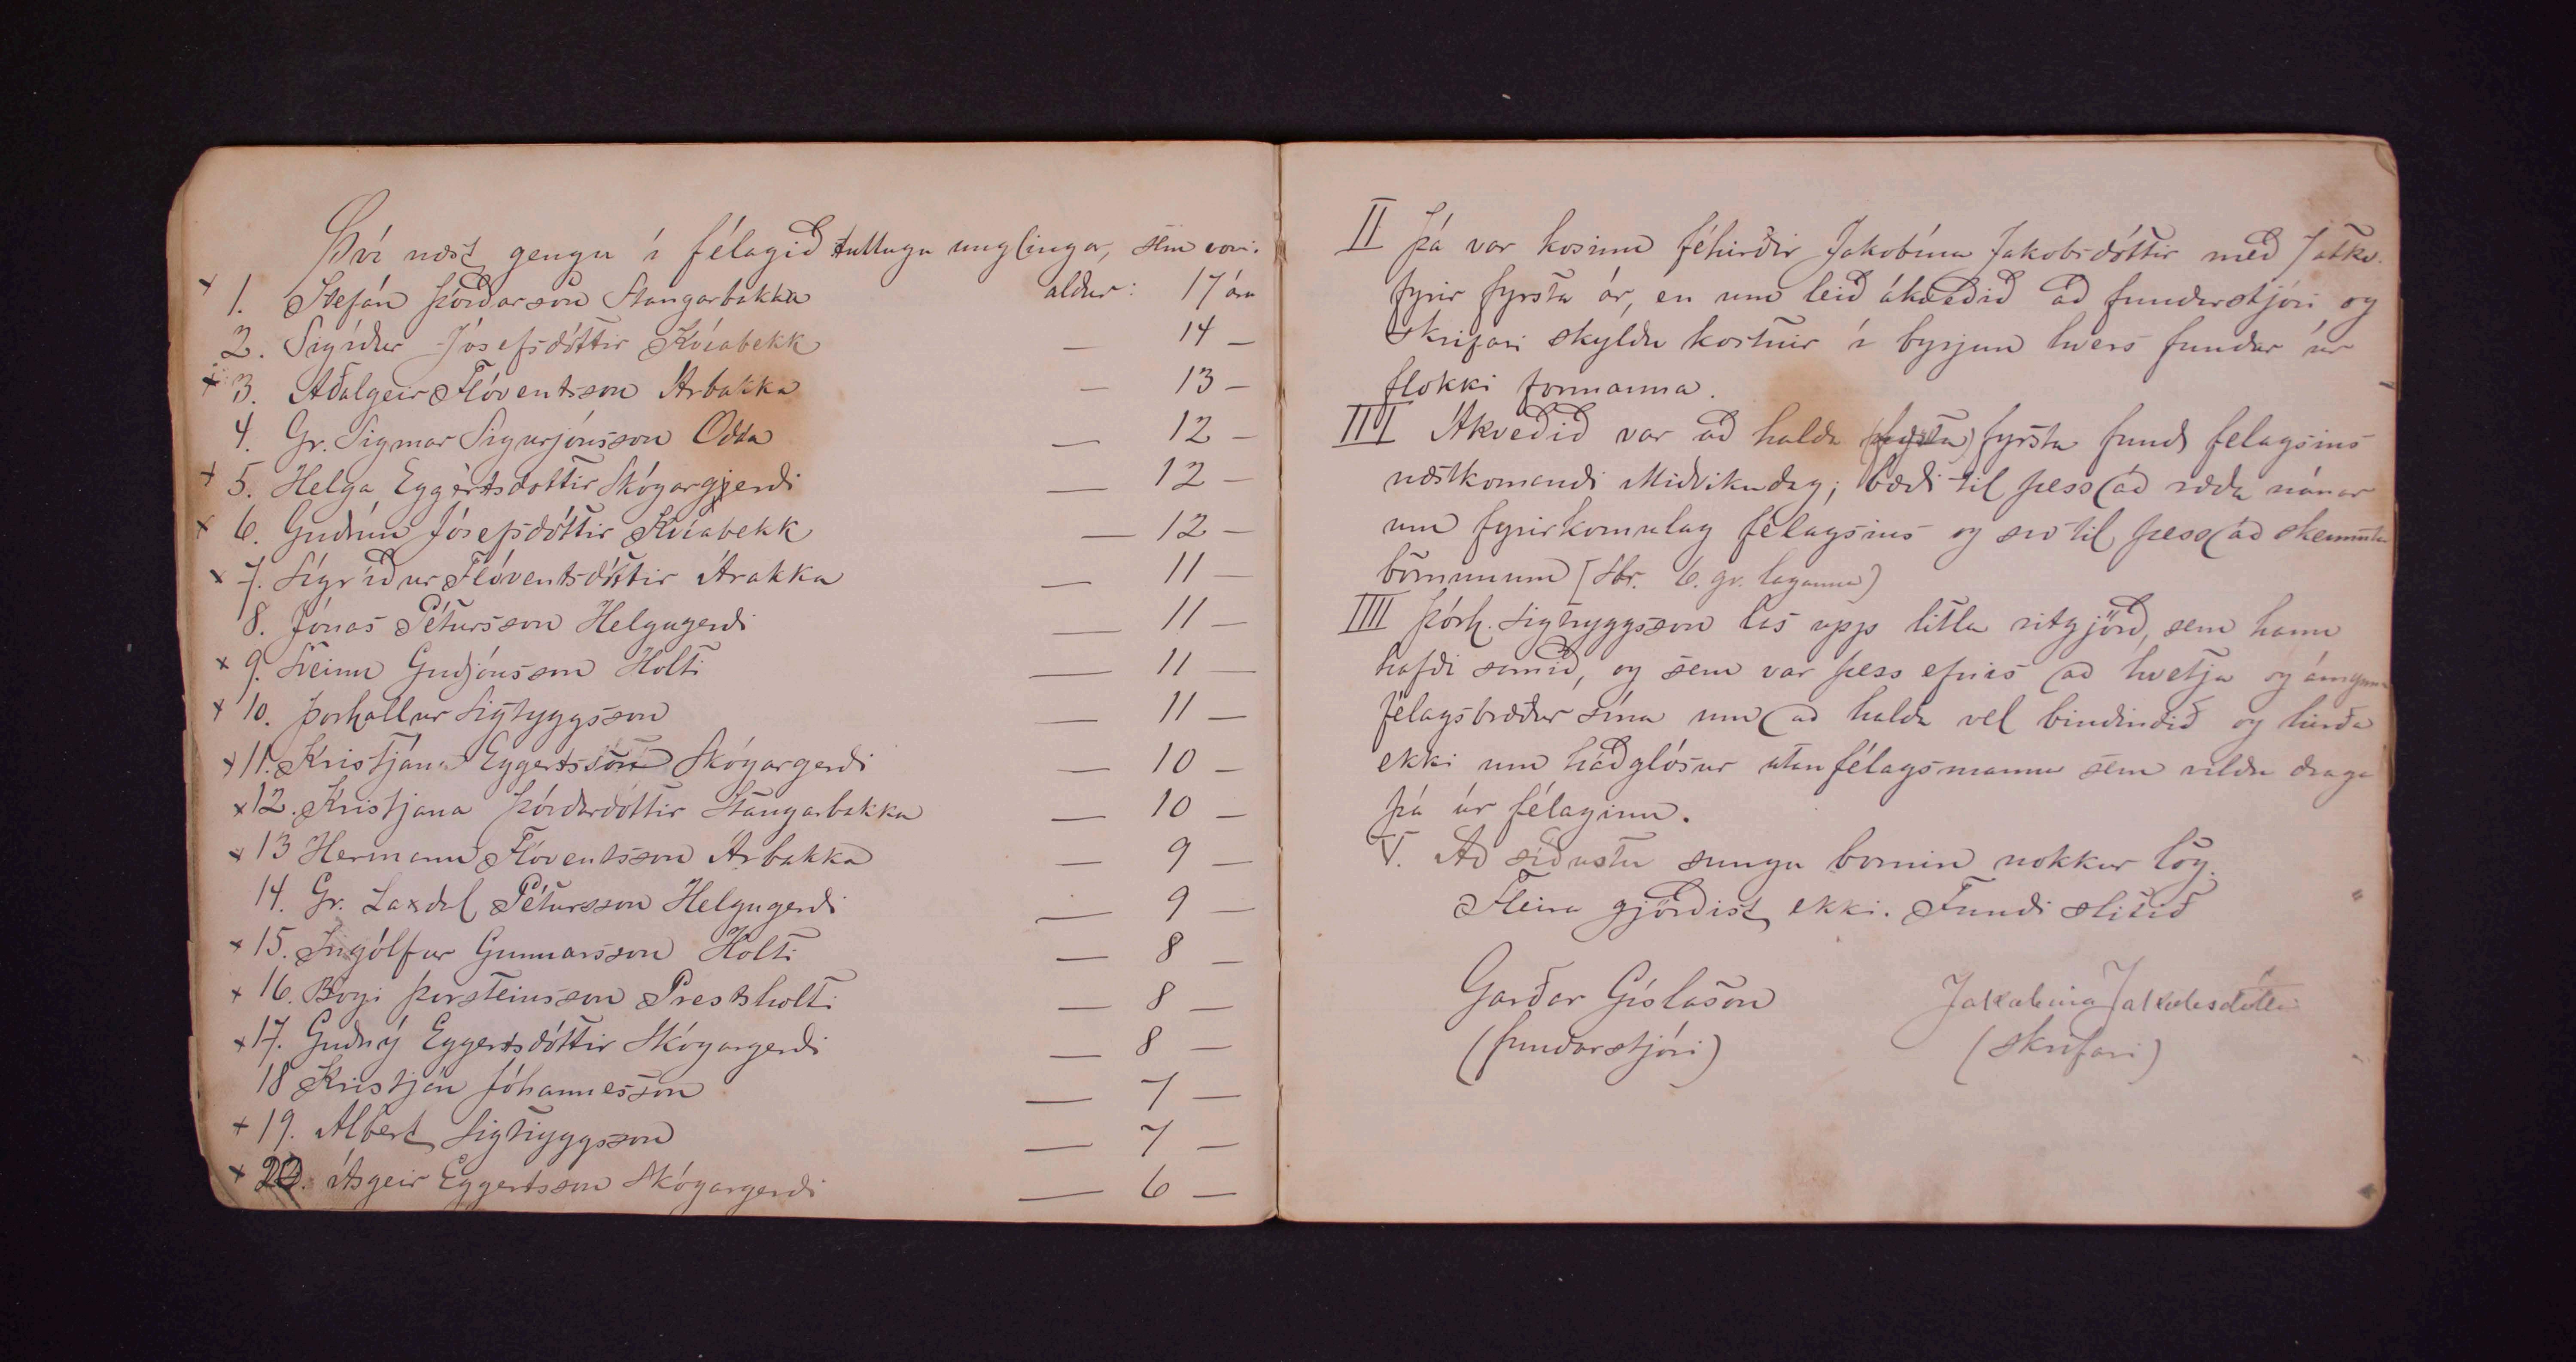 Því næst gengu í félagið tuttugu unglingar, sem voru:
× 1. Stefán Þórðarson Stangarbakka aldur: 17 ára
2. Sigríður Jósefsdóttir Kvíabekk — 14 —
× 3. Aðalgeir Flóventsson Árbakka — 13 —
4. Gr. Sigmar Sigurjónsson Odda — 12 —
× 5. Helga Eggertsdottir Skógargerði — 12 —
× 6. Guðrún Jósepsdóttir Kvíabekk — 12 —
× 7. Sigríður Flóventsdóttir Árakka — 11 —
8. Jónas Pétursson Helgugerði — 11 —
× 9. Steinn Guðjónsson Holti — 11 —
× 10. Þorhallur Sigtyggsson — 11 —
× 11. Kristjána Eggertsson Skógargerði — 10 —
× 12. Kristjana Þórðardóttir Stangarbakka — 10 —
× 13 Hermann Flóventsson Árbakka — 9 —
14. Gr. Laxdal Pétursson Helgugerði — 9 —
× 15. Ingólfur Gunnarsson Holti — 8 —
× 16. Bogi Þorsteinsson Prestsholti — 8 —
× 17. Guðný Eggertsdóttir Skógargerði — 8 —
18 Kristján Jóhannesson — 7 —
× 19. Albert Sigtryggsson — 7 —
× 20. Ásgeir Eggertsson Skógargerði — 6 —
II Þá var kosinn féhirðir Jakobína Jakobsdóttir með 7 atkv.
fyrir fyrsta ár, en um leið ákveðið að fundarstjóri og
skrifari skyldu kosnir í byrjun hvers fundar úr
flokki formanna.
III Ákveðið var að halda (fyrsta) fyrsta fund felagsins
næstkomandi Miðvikudag; bæði til þess að ræða nánar
um fyrirkomulag félagsins og svo til þess að skemmta
börnunum (sbr. 6. gr. laganna)
IIII Þórh. Sigtryggsson las upp litla ritgjörð, sem hann
hafði samið, og sem var þess efnis að hvetja og
félagsbræður sína um að halda vel bindindið og hirða
ekki um háðglósur utanfélagsmanna sem vildu draga
þá úr félaginu.
V. Að síðustu sungu börnin nokkur lög.
Fleira gjörðist ekki. Fundi slitið
Garðar Gíslason Jakobína Jakobsdóttir
(fundarstjóri) (skrifari)